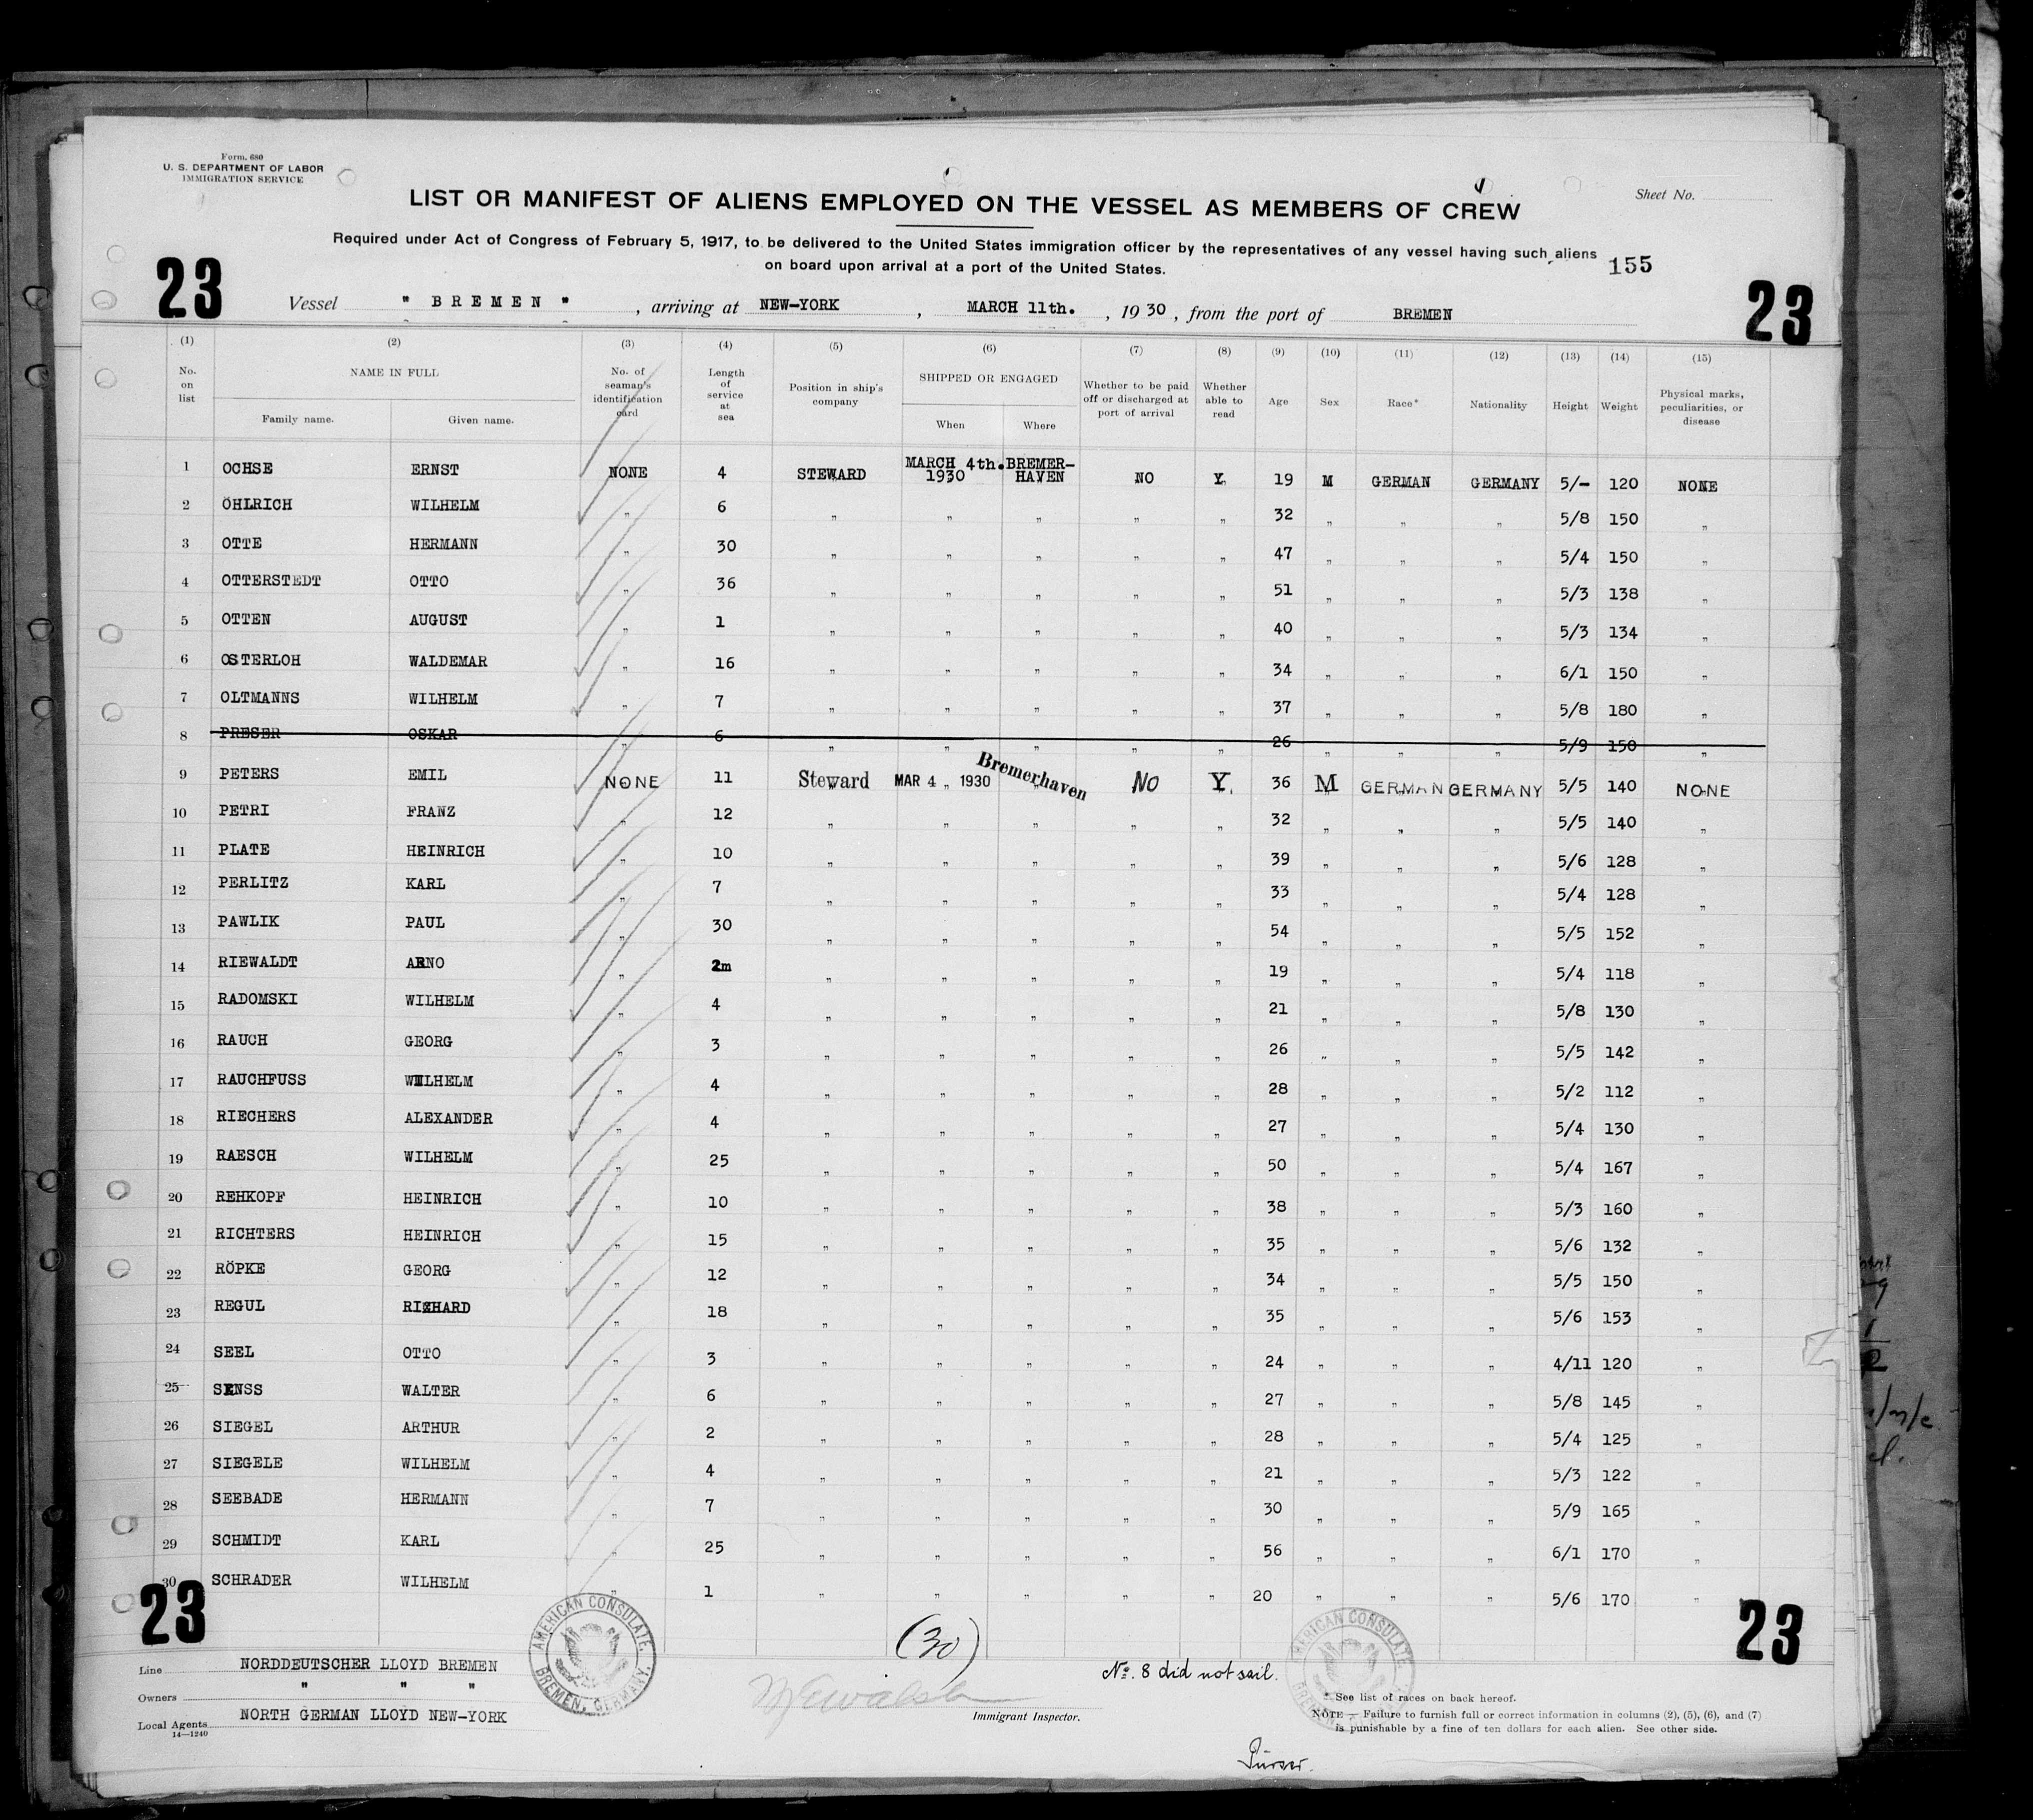 Form. 680
U. S. DEPARTMENT OF LABOR
IMMIGRATION SERVICE
LIST OR MANIFEST OF ALIENS EMPLOYED ON THE VESSEL AS MEMBERS OF CREW
Sheet No.
Required under Act of Congress of February 5, 1917, to be delivered to the United States immigration officer by the representatives of any vessel having such aliens
on board upon arrival at a port of the United States.
155
23 23
Vessel " BREMEN " , arriving at NEW-YORK , MARCH 11th. , 19 30 , from the port of BREMEN
(1) (2) (3) (4) (5) (6) (7) (8) (9) (10) (11) (12) (13) (14) (15)
No. on list NAME IN FULL Family name. Given name. No. of seaman's identification card Length of service at sea Position in ship's company SHIPPED OR ENGAGED When Where Whether to be paid off or discharged at port of arrival Whether able to read Age Sex Race* Nationality Height Weight Physical marks, peculiarities, or disease
1 OCHSE ERNST NONE 4 STEWARD MARCH 4th. 1930 BREMER-HAVEN NO Y. 19 M GERMAN GERMANY 5/- 120 NONE
2 ÖHLRICH WILHELM " 6 " " " " " 32 " " " 5/8 150 "
3 OTTE HERMANN " 30 " " " " " 47 " " " 5/4 150 "
4 OTTERSTEDT OTTO " 36 " " " " " 51 " " " 5/3 138 "
5 OTTEN AUGUST " 1 " " " " " 40 " " " 5/3 134 "
6 OSTERLOH WALDEMAR " 16 " " " " " 34 " " " 6/1 150 "
7 OLTMANNS WILHELM " 7 " " " " " 37 " " " 5/8 180 "
8 PRESER OSKAR " 6 " " " " " 26 " " " 5/9 150 "
9 PETERS EMIL NONE 11 Steward MAR 4 " 1930 Bremerhaven NO Y. 36 M GERMAN GERMANY 5/5 140 NONE
10 PETRI FRANZ " 12 " " " " " 32 " " " 5/5 140 "
11 PLATE HEINRICH " 10 " " " " " 39 " " " 5/6 128 "
12 PERLITZ KARL " 7 " " " " " 33 " " " 5/4 128 "
13 PAWLIK PAUL " 30 " " " " " 54 " " " 5/5 152 "
14 RIEWALDT ARNO " 2m " " " " " 19 " " " 5/4 118 "
15 RADOMSKI WILHELM " 4 " " " " " 21 " " " 5/8 130 "
16 RAUCH GEORG " 3 " " " " " 26 " " " 5/5 142 "
17 RAUCHFUSS WILHELM " 4 " " " " " 28 " " " 5/2 112 "
18 RIECHERS ALEXANDER " 4 " " " " " 27 " " " 5/4 130 "
19 RAESCH WILHELM " 25 " " " " " 50 " " " 5/4 167 "
20 REHKOPF HEINRICH " 10 " " " " " 38 " " " 5/3 160 "
21 RICHTERS HEINRICH " 15 " " " " " 35 " " " 5/6 132 "
22 RÖPKE GEORG " 12 " " " " " 34 " " " 5/5 150 "
23 REGUL RICHARD " 18 " " " " " 35 " " " 5/6 153 "
24 SEEL OTTO " 3 " " " " " 24 " " " 4/11 120 "
25 SENSS WALTER " 6 " " " " " 27 " " " 5/8 145 "
26 SIEGEL ARTHUR " 2 " " " " " 28 " " " 5/4 125 "
27 SIEGELE WILHELM " 4 " " " " " 21 " " " 5/3 122 "
28 SEEBADE HERMANN " 7 " " " " " 30 " " " 5/9 165 "
29 SCHMIDT KARL " 25 " " " " " 56 " " " 6/1 170 "
30 SCHRADER WILHELM " 1 " " " " " 20 " " " 5/6 170 "
23 23
(30)
AMERICAN CONSULATE, BREMEN, GERMANY.
AMERICAN CONSULATE,
Line NORDDEUTSCHER LLOYD BREMEN
Owners " " "
Local Agents NORTH GERMAN LLOYD NEW-YORK
14—1240
Immigrant Inspector.
No. 8 did not sail.
* See list of races on back hereof.
NOTE.— Failure to furnish full or correct information in columns (2), (5), (6), and (7)
is punishable by a fine of ten dollars for each alien. See other side.
Purser.